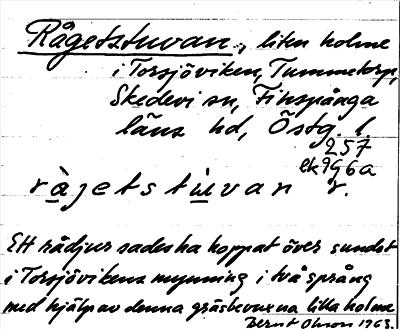 Rågetstuvan, liten holme
i Torsjöviken, Tummetorp,
Skedevi sn, Finspånga
läns hd, Östg. l.
257
ek 996a
ràjetstùvan r.
Ett rådjur sades ha hoppat över sundet
i Torsjövikens mynning i två språng
med hjälp av denna gräsbevuxna lilla holme
Bernt Olsson 1963.